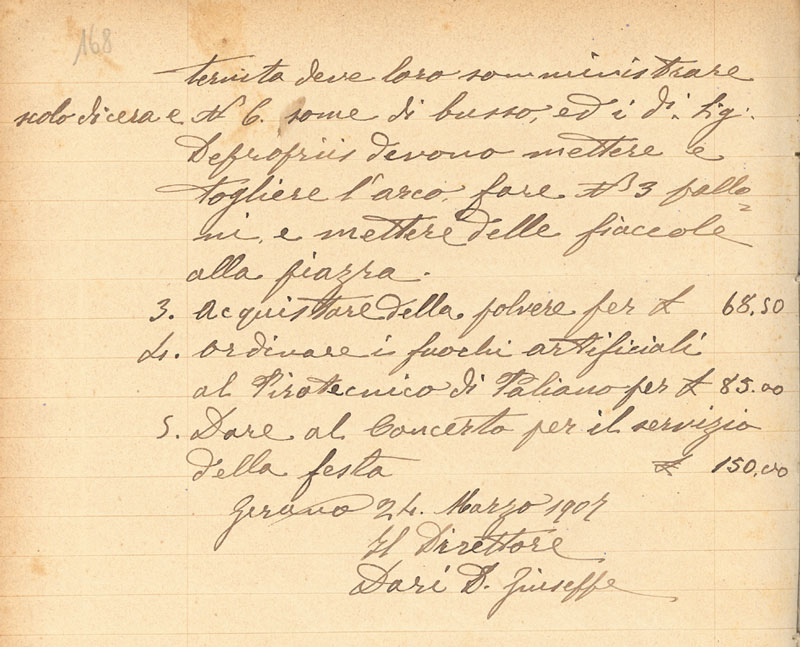 168
ternita deve loro somministrare
solo di cera e N 6. some di busso, ed i di. Sig:
Depropriis devono mettere e
togliere l'arco, fare N 3 pallo=
ni, e mettere delle fiaccole
alla piazza.
3. Acquistare della polvere per £ 68,50
4. Ordinare i fuochi artificiali
al Pirotecnico di Paliano per £ 85.00
5. Dare al Concerto per il servizio
della festa £ 150,00
Gerano 24. Marzo 1907
Il Direttore
Dari D. Giuseppe